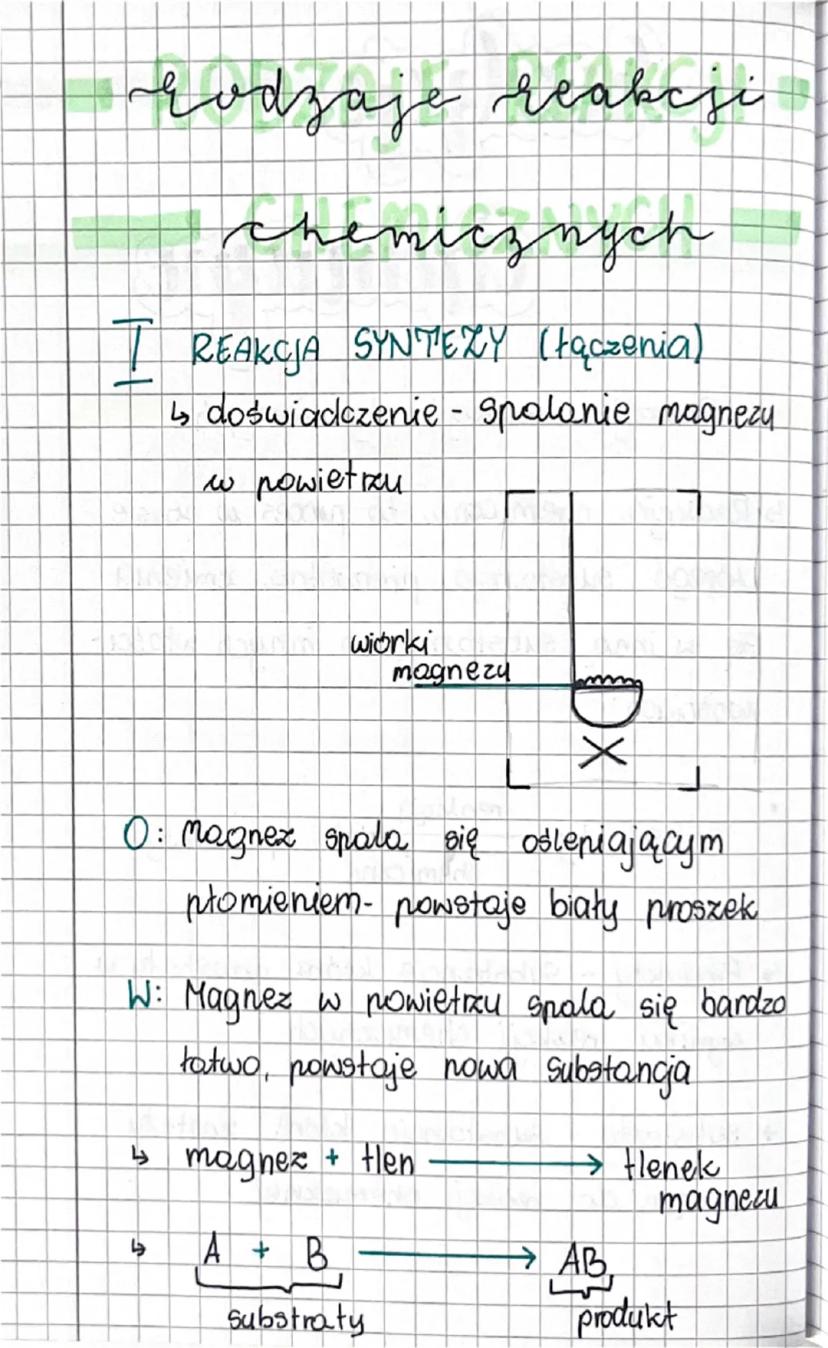 RODZAJE REAKCJI
rodzaje reakcji
CHEMICZNYCH
chemicznych
I REAKCJA SYNTEZY (łączenia)
↳ doświadczenie - spalanie magnezu
w powietrzu
wiórki
magnezu
O: Magnez spala się oślepiającym
płomieniem - powstaje biały proszek
W: Magnez w powietrzu spala się bardzo
łatwo, powstaje nowa substancja
↳ magnez + tlen → tlenek
magnezu
↳ A + B → AB
substraty produkt